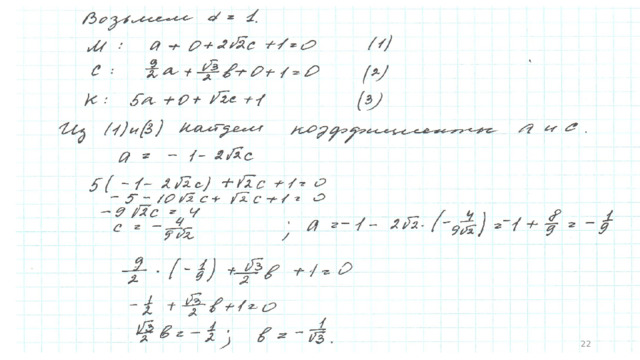 Возьмем d = 1.
М: a + 0 + 2√2c + 1 = 0 (1)
С: 9/2 a + √3/2 в + 0 + 1 = 0 (2)
К: 5a + 0 + √2c + 1 (3)
Из (1) и (3) найдем коэффициенты а и с.
a = - 1 - 2√2c
5(-1 - 2√2c) + √2c + 1 = 0
-5 - 10√2c + √2c + 1 = 0
-9√2c = 4
c = - 4/9√2 ; a = -1 - 2√2 · (- 4/9√2) = -1 + 8/9 = - 1/9
9/2 · (- 1/9) + √3/2 в + 1 = 0
- 1/2 + √3/2 в + 1 = 0
√3/2 в = - 1/2 ; в = - 1/√3 .
22